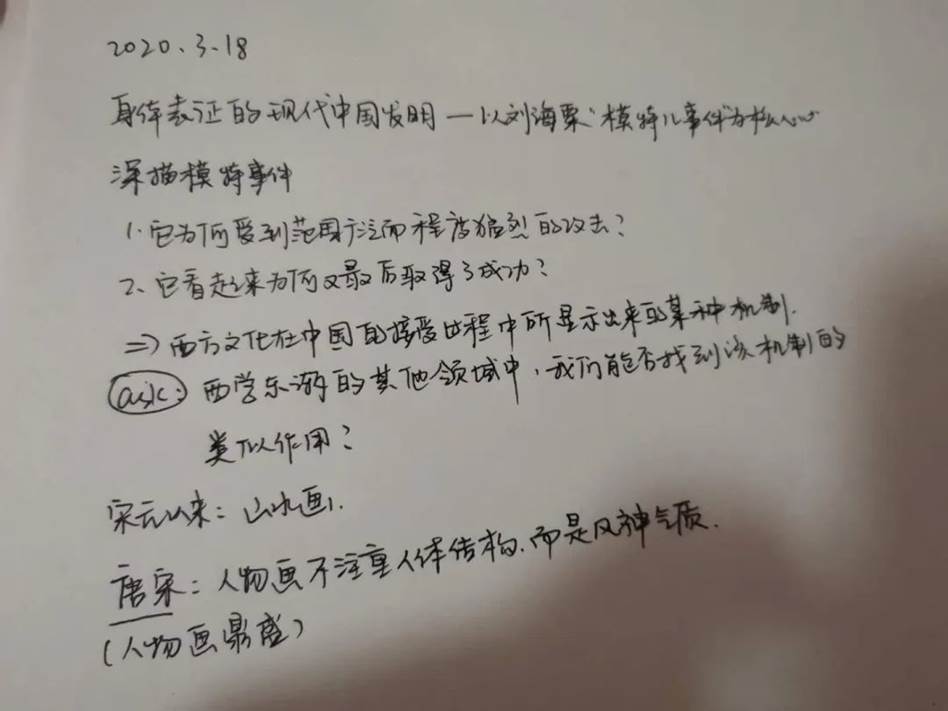 2020.3.18
身体表征的现代中国发明—以刘海粟“模特儿事件”为核心
深描模特事件
1.它为何受到范围广泛而程度猛烈的攻击?
2、它看起来为何又最后取得了成功?
=> 西方文化在中国的接受过程中所显示出来的某种机制.
ask: 西学东渐的其他领域中,我们能否找到该机制的
类似作用?
宋元以来: 山水画.
唐宋: 人物画不注重人体结构.而是风神气质.
(人物画鼎盛)